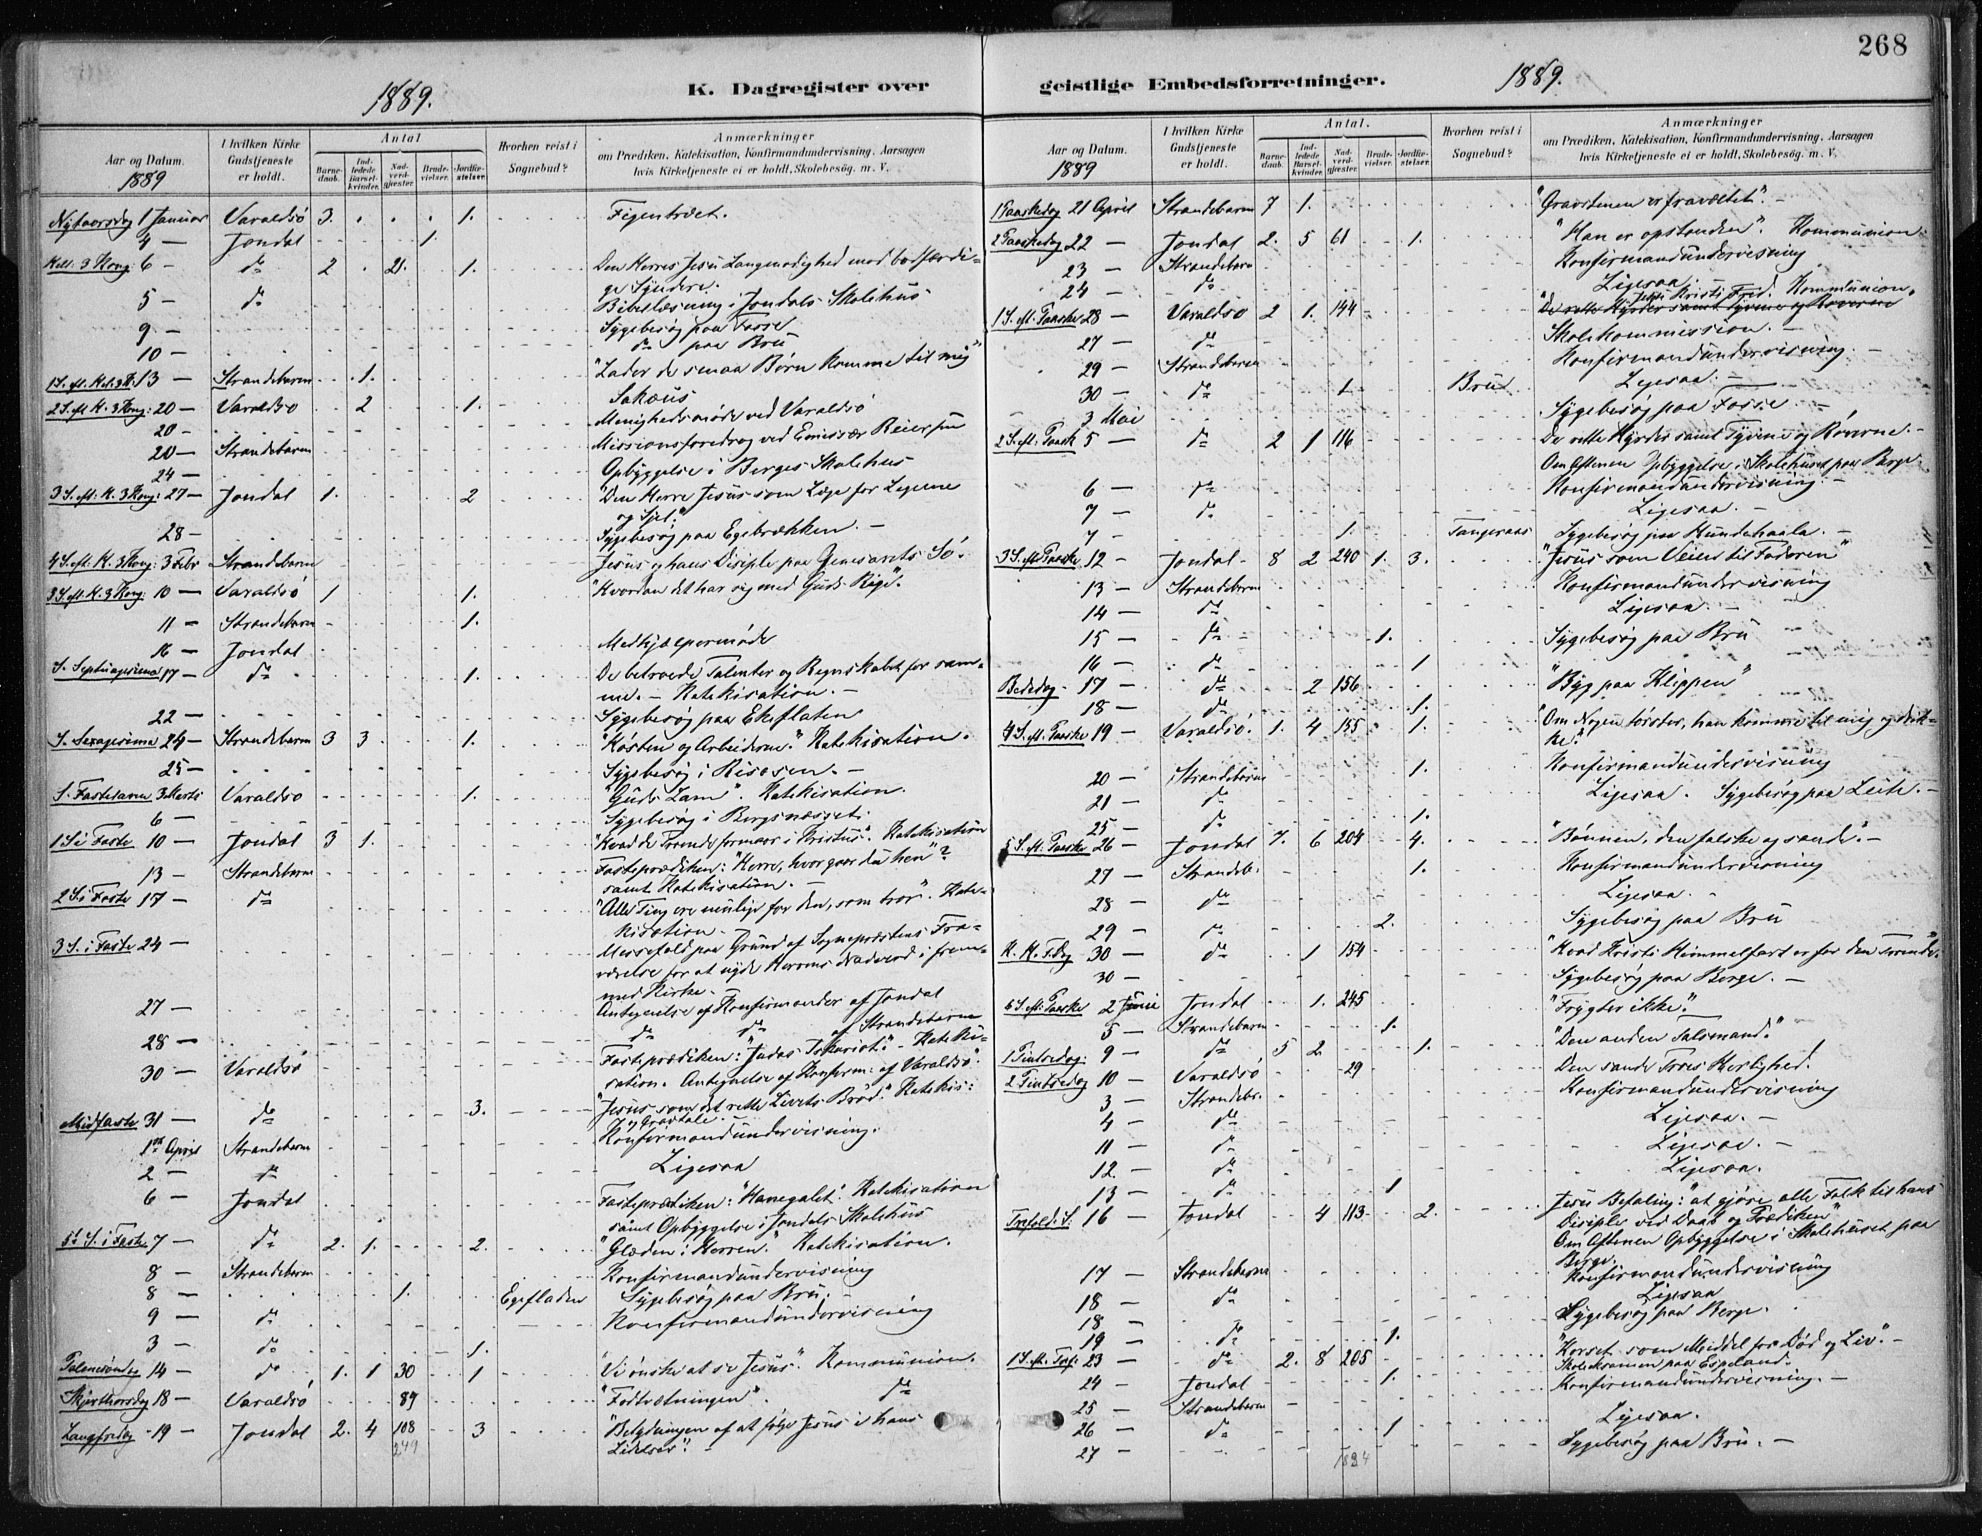 268
1889.
K. Dagregister over
Aar og Datum.
1889
I hvilken Kirke Gudstjeneste er holdt.
Antal
Barnedaab.
Indledede Barselkvinder.
Nadverdgjæster.
Brudevielser.
Jordfæstelser.
Hvorhen reist i Sognebud?
Anmærkninger
om Prædiken, Katekisation, Konfirmandundervisning, Aarsagen
hvis Kirketjeneste ei er holdt, Skolebesøg. m. V.
Nytaarsdag 1 Januar Varaldsö 3. 1. Figentræet.
4 — Jondal 1.
Hell: 3 Kong: 6 — do 2 21. 1. Den Herres Jesu Langmodighed med bodfærdi-
ge Syndere.
5 — do Bibellæsning i Jondals Skolehus
9 — Sygebesøg paa Fosse
10 — do paa Bru
1 S. eft. Hel. 3 K. 13 — Strandebarm 1. "Lader de smaa Børn komme til mig"
2 S. eft H. 3 Kong: 20 — Varaldsö 2 1. Sakæus
20 — Menighedsmøde ved Varaldsö
20 — Strandebarm Missionsforedrag ved Emissær Reiersen
24 — Opbyggelse i Berges Skolehus
3 S. eft: H. 3 Kong: 27 — Jondal 1. 2 "Den Herre Jesus som Læge for Legeme
og Sjel."
28 — Sygebesøg paa Egebrækken. —
4 S. eft. H. 3 Kong: 3 Febr Strandebarm Jesus og hans Disciple paa Genesarets Sö.
5 S. eft. H. 3 Kong: 10 — Varaldsö 1 1. "Hvordan det har sig med Guds Rige".
11 — Strandebarm 1.
16 — Jondal Medhjælpermöde
S. Septuagesima 17 — do 1. De betroede Talenter og Regnskabet for sam-
me. — Katekisation. —
22 — Sygebesøg paa Ekeflaten
S. Sexagesima 24 — Strandebarm 3 3 1. "Høsten og Arbeiderne." Katekisation.
25 — Sygebesøg i Risosen. —
S. Fastelavn 3 Marts Varaldsö 1. "Guds Lam". Katekisation.
6 — Sygebesøg i Bergsnæsset.
1 S. i Faste 10 — Jondal 3 1. "Hvad de Troende formaar i Kristus". Katekisation
13 — Strandebarm Fasteprædiken: "Herre, hvor gaar du hen"?
samt Katekisation. —
2 S. i Faste 17 — do "Alle Ting ere mulige for den, som tror". Kate-
kisation.
3 S. i Faste 24 — Messefald paa Grund af Sognepræstens Fra-
værelse for at nyde Herrens Nadverd i frem-
med Kirke.
27 — Antegnelse af Konfirmander af Jondal
28 — do do af Strandebarm
30 — Varaldsö Fasteprædiken: "Judas Iskariot". — Kateki-
sation. Antegnelse af Konfirm: af Varaldsö.
Midfaste 31 — do 3. "Jesus som det rette Livets Brød". Katekis:
Gravtale.
1st April Strandebarm Konfirmandundervisning.
2 — do Ligesaa
6 — Jondal Fasteprædiken: "Hanegalet". Katekisation
samt Opbyggelse i Jondals Skolehus
5. S. i Faste 7 — do 2. 1. 2. "Glæden i Herren." Katekisation.
8 — Strandebarm Konfirmandundervisning
8 — 1. Egefladen Sygebesøg paa Bru. —
9 — do Konfirmandundervisning
3 — do 1.
Palmesøndag 14 — do 1. 1 30 1 "Vi ønske at se Jesus". Kommunion.
Skjærthorsdag 18 — Varaldsö 89 "Fodtvætningen". do
Langfredag 19 — Jondal 2. 4 108 3 "Betydningen af at følge Jesus i hans
249 Lidelser". —
geistlige Embedsforretninger.
1889.
Aar og Datum.
1889
I hvilken Kirke Gudstjeneste er holdt.
Antal.
Barnedaab.
Indledede Barselkvinder.
Nadverdgjæster.
Brudevielser.
Jordfæstelser.
Hvorhen reist i Sognebud?
Anmærkninger
om Prædiken, Katekisation, Konfirmandundervisning, Aarsagen
hvis Kirketjeneste ei er holdt, Skolebesøg. m. V.
1 Paaskedag 21 April Strandebarm 7 1. "Gravstenen er fravæltet".
2 Paaskedag 22 — Jondal 2. 5 61 1. "Han er opstanden". Kommunion.
23 — Strandebarm Konfirmandundervisning
24 — do Ligesaa
1 S. eft. Paaske 28 — Varaldsö 2 1. 144 Jesu Kristi Fred. Kommunion.
"De rette Hyrder samt Tyvene og Røverne
27 — do Skolekommission. —
29 — Strandebarm Konfirmandundervisning. —
30 — do 1. Bru Ligesaa. —
3 Mai Sygebesøg paa Fosse. —
2 S. eft. Paask 5 — do 2 1 116 De rette Hyrder samt Tyvene og Røverne. —
Om Aftenen Opbyggelse i Skolehuset paa Berge
6 — do Konfirmandundervisning. —
7 — do Ligesaa. —
7 — 1. Tangeraas Sygebesøg paa Hundehaala. —
3 S. eft Paaske 12 — Jondal 8 2 240 1. 3. "Jesus som Veien til Faderen"
13 — Strandebarm Konfirmandundervisning
14 — do Ligesaa. —
15 — do 1. Sygebesøg paa Bru
16 — do 1
Bededag 17 — do 2 156 "Byg paa Klippen"
18 — do 1.
4 S. eft. Paaske 19 — Varaldsö. 1. 4 155 1. "Om Nogen tørster, han komme til mig og drik-
ke."
20 — Strandebarm 1. Konfirmandundervisning
21 — do Ligesaa. Sygebesøg paa Leite. —
25 — do 1.
5 S. eft. Paaske 26 — Jondal 7. 6 204 4. "Bønnen, den falske og sande". —
27 — Strandeb. 1. Konfirmandundervisning
28 — do Ligesaa. —
29 — do 2. Sygebesøg paa Bru
K. H. F. dag 30 — do 1 154 "Hvad Kristi Himmelfart er for den Troende".
30 — Sygebesøg paa Berge. —
6 S. eft: Paaske 2 Juni Jondal 1. 245 "Frygter ikke".
5 — Strandebarm 1.
1 Pintsedag: 9 — do 5 2 1. "Den anden Talsmand."
2 Pintsedag 10 — Varaldsö 29 Den sande Troes Kerlighed.
3 — Strandebr. Konfirmandundervisning
4 — do Ligesaa. —
11 — do Ligesaa. —
12. do Ligesaa.
13 — do 1
Trefold: S. 16 — Jondal 4 113 2. Jesu Befaling: "at gjøre alle Folk til hans
Disciple ved Daab og Prædiken"
Om Aftenen Opbyggelse i Skolehuset paa
Berge.
17 — Strandebarm Konfirmandundervisning
18 — do Ligesaa
18 — Sygebesøg paa Berge.
19 — do 1.
1 S. eft. Tref. 23 — do 2. 8 205 "Korset som Middel for Død og Liv". —
Skoleexamen paa Espeland.
24 — Jondal 1. Konfirmandundervisning. —
25 — Strandebarm Ligesaa.
26 — do 1
27 — Sygebesøg paa Bru. —